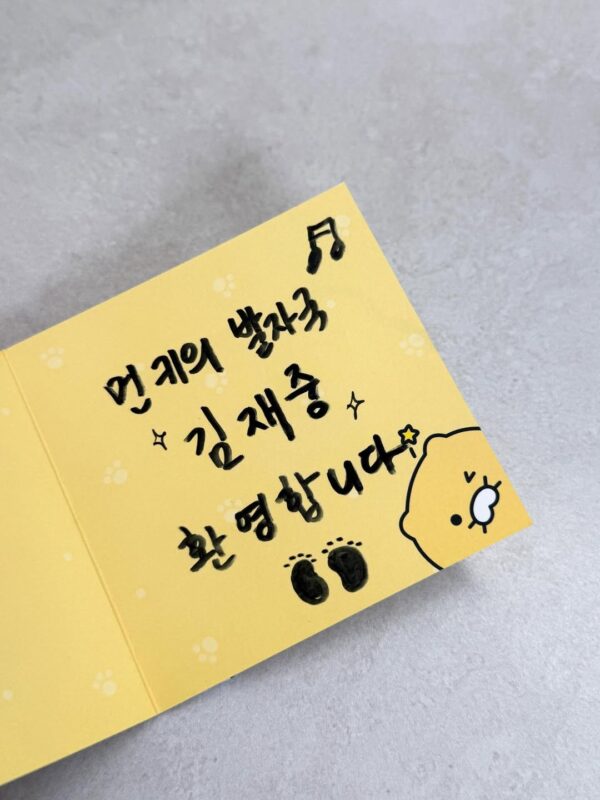 먼키의 발자국
김재중
환영합니다